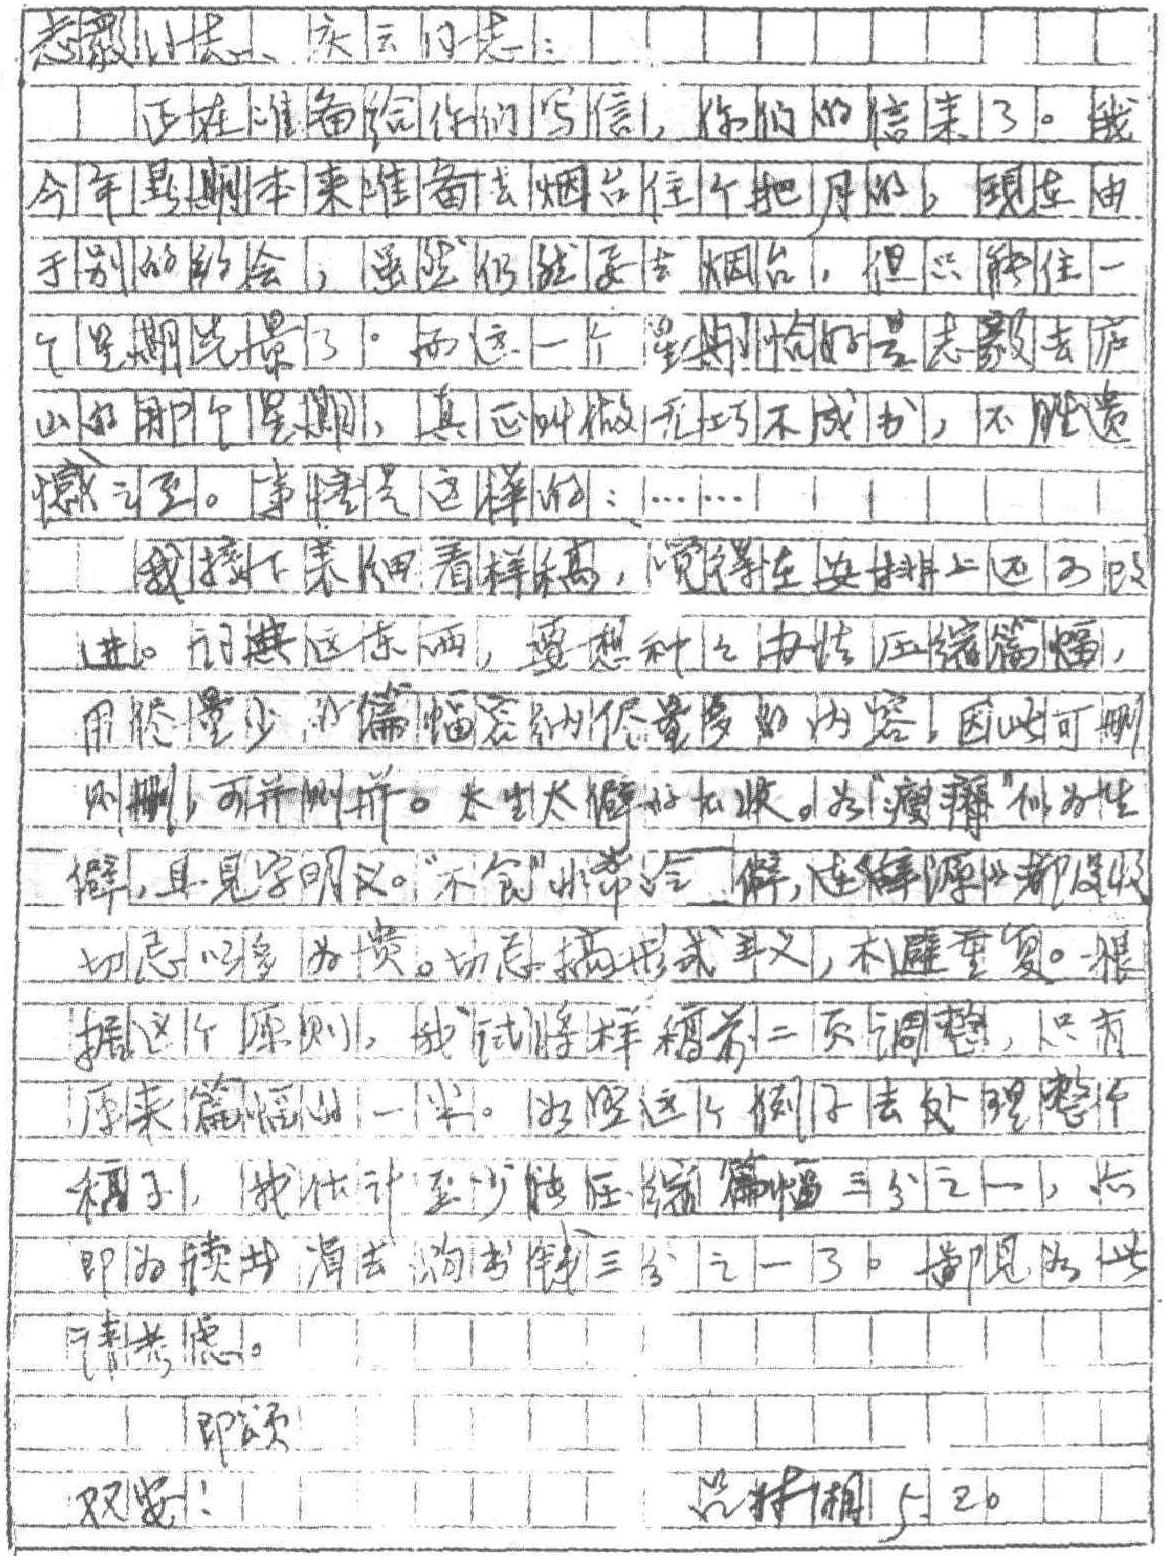 志毅同志、庆云同志：
正在准备给你们写信，你们的信来了。我
今年暑期本来准备去烟台住个把月的，现在由
于别的约会，虽然仍然要去烟台，但只能住一
个星期光景了。而这一个星期恰好是志毅去庐
山的那个星期，真正叫做无巧不成书，不胜遗
憾之至。事情是这样的：……
我接下来细看样稿，觉得在安排上还可改
进。词典这东西，要想种种办法压缩篇幅，
用尽量少的篇幅容纳尽量多的内容，因此可删
则删，可并则并。太生太僻的不收。如“瘦瘠”似为生
僻，且见字明义。“不食”非常冷僻，连《辞源》都没收
切忌以多为贵。切忌搞形式主义，不避重复。根
据这个原则，我试将样稿前二页调整，只有
原来篇幅的一半。如照这个例子去处理整个
稿子，我估计至少能压缩篇幅三分之一，亦
即为读者省去购书钱三分之一了。鄙见如此
请考虑。
即颂
双安！ 吕叔湘 5.20